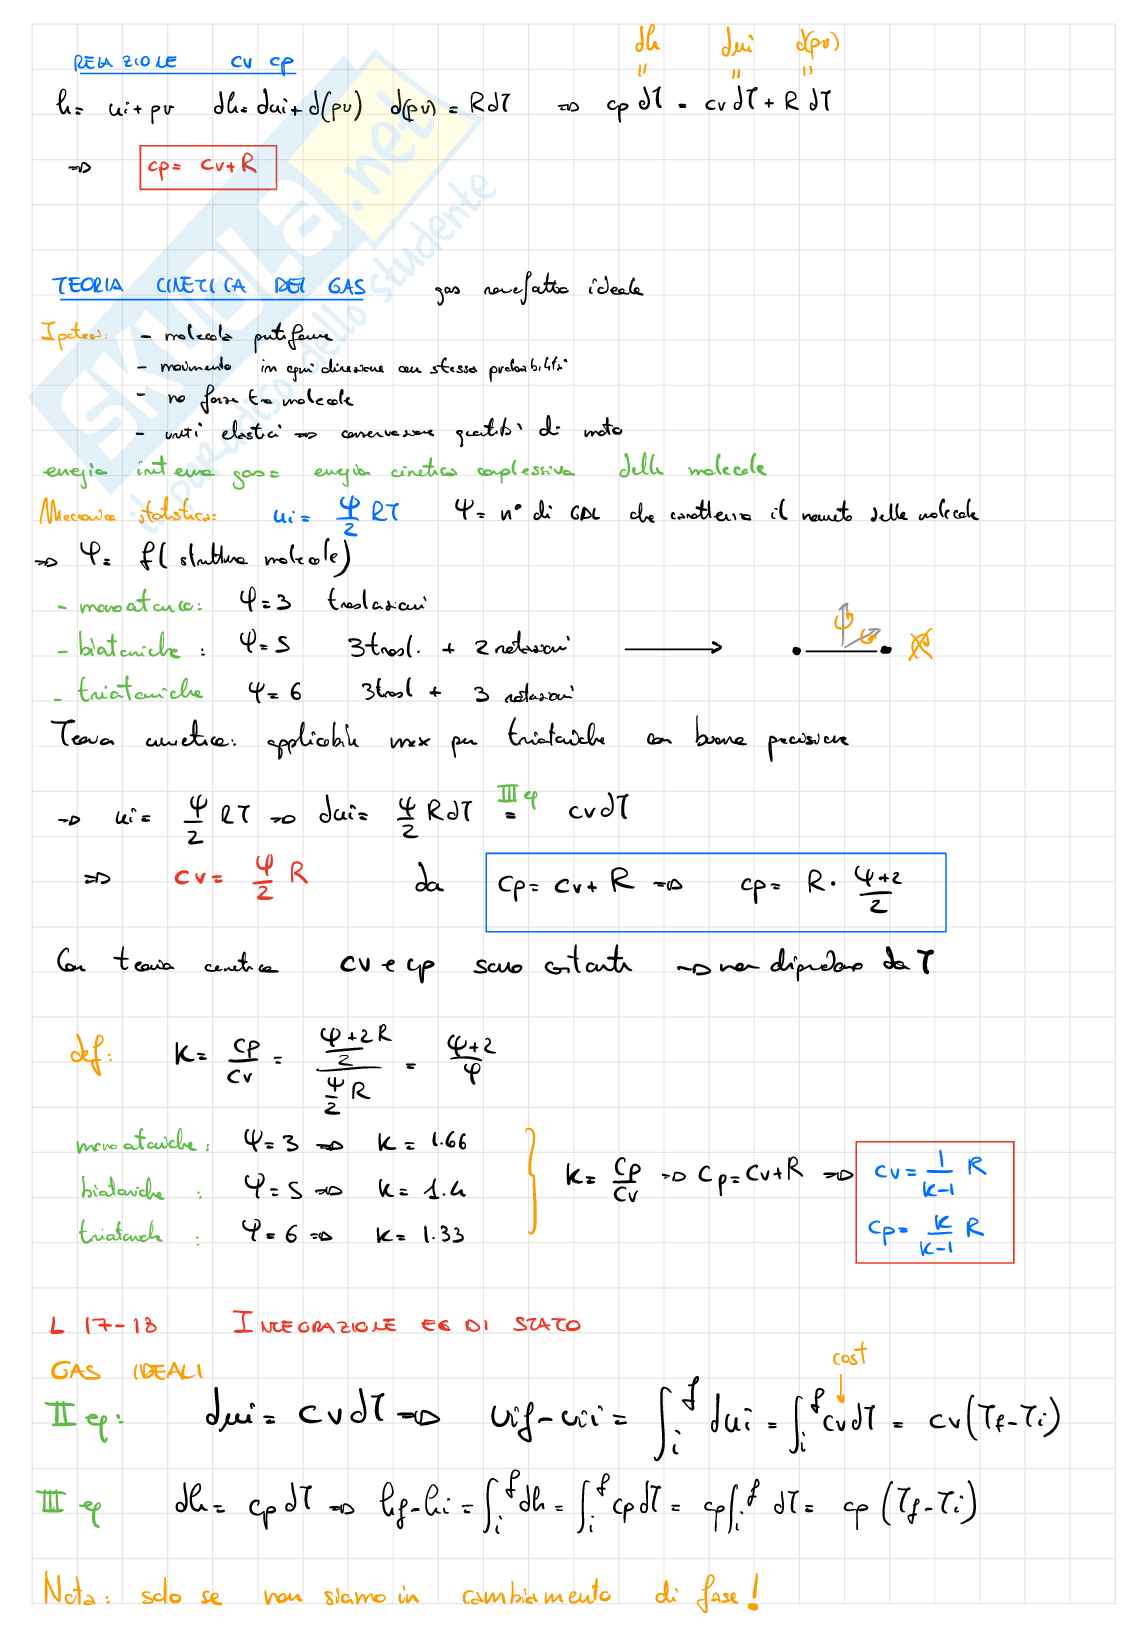 dh dui d(pv)
" " "
RELAZIONE cv cp
h= ui+pv dh= dui+d(pv) d(pv)=RdT => cp dT = cv dT + R dT
=> cp= cv+R
TEORIA CINETICA DEI GAS gas rarefatto ideale
Ipotesi: - molecola puntiforme
- movimento in ogni direzione con stessa probabilità
- no forze tra molecole
- urti elastici => conservazione quantità di moto
energia interna gas= energia cinetica complessiva delle molecole
Meccanica statistica: ui= φ/2 RT φ= n° di GDL che caratterizza il moto delle molecole
=> φ= f(struttura molecole)
- monoatomiche: φ=3 traslazioni
- biatomiche : φ=5 3trasl. + 2 rotazioni →
- triatomiche φ= 6 3trasl + 3 rotazioni
Teoria cinetica: applicabile max per triatomiche con buona precisione
=> ui= φ/2 RT => dui= φ/2 RdT = cvdT
III ep
=> cv= φ/2 R da cp= cv+ R => cp= R· φ+2/2
Con teoria cinetica cv e cp sono costanti => non dipendono da T
def: K= cp/cv = (φ+2/2 R)/(φ/2 R) = φ+2/φ
monoatomiche: φ=3 => K= 1.66
biatomiche : φ=5 => K= 1.4
triatomiche : φ=6 => K= 1.33
K= cp/cv => cp=cv+R => cv= 1/K-1 R
cp= K/K-1 R
L 17-18 INTEGRAZIONE EQ DI STATO
GAS IDEALI
cost
II ep: dui= cvdT => uif-uii= ∫_i^f dui = ∫_i^f cvdT = cv(Tf-Ti)
III ep dh= cp dT => hf-hi=∫_i^f dh= ∫_i^f cpdT= cp∫_i^f dT= cp (Tf-Ti)
Nota: solo se non siamo in cambiamento di fase!
SKUOLA.net
il paradiso dello studente